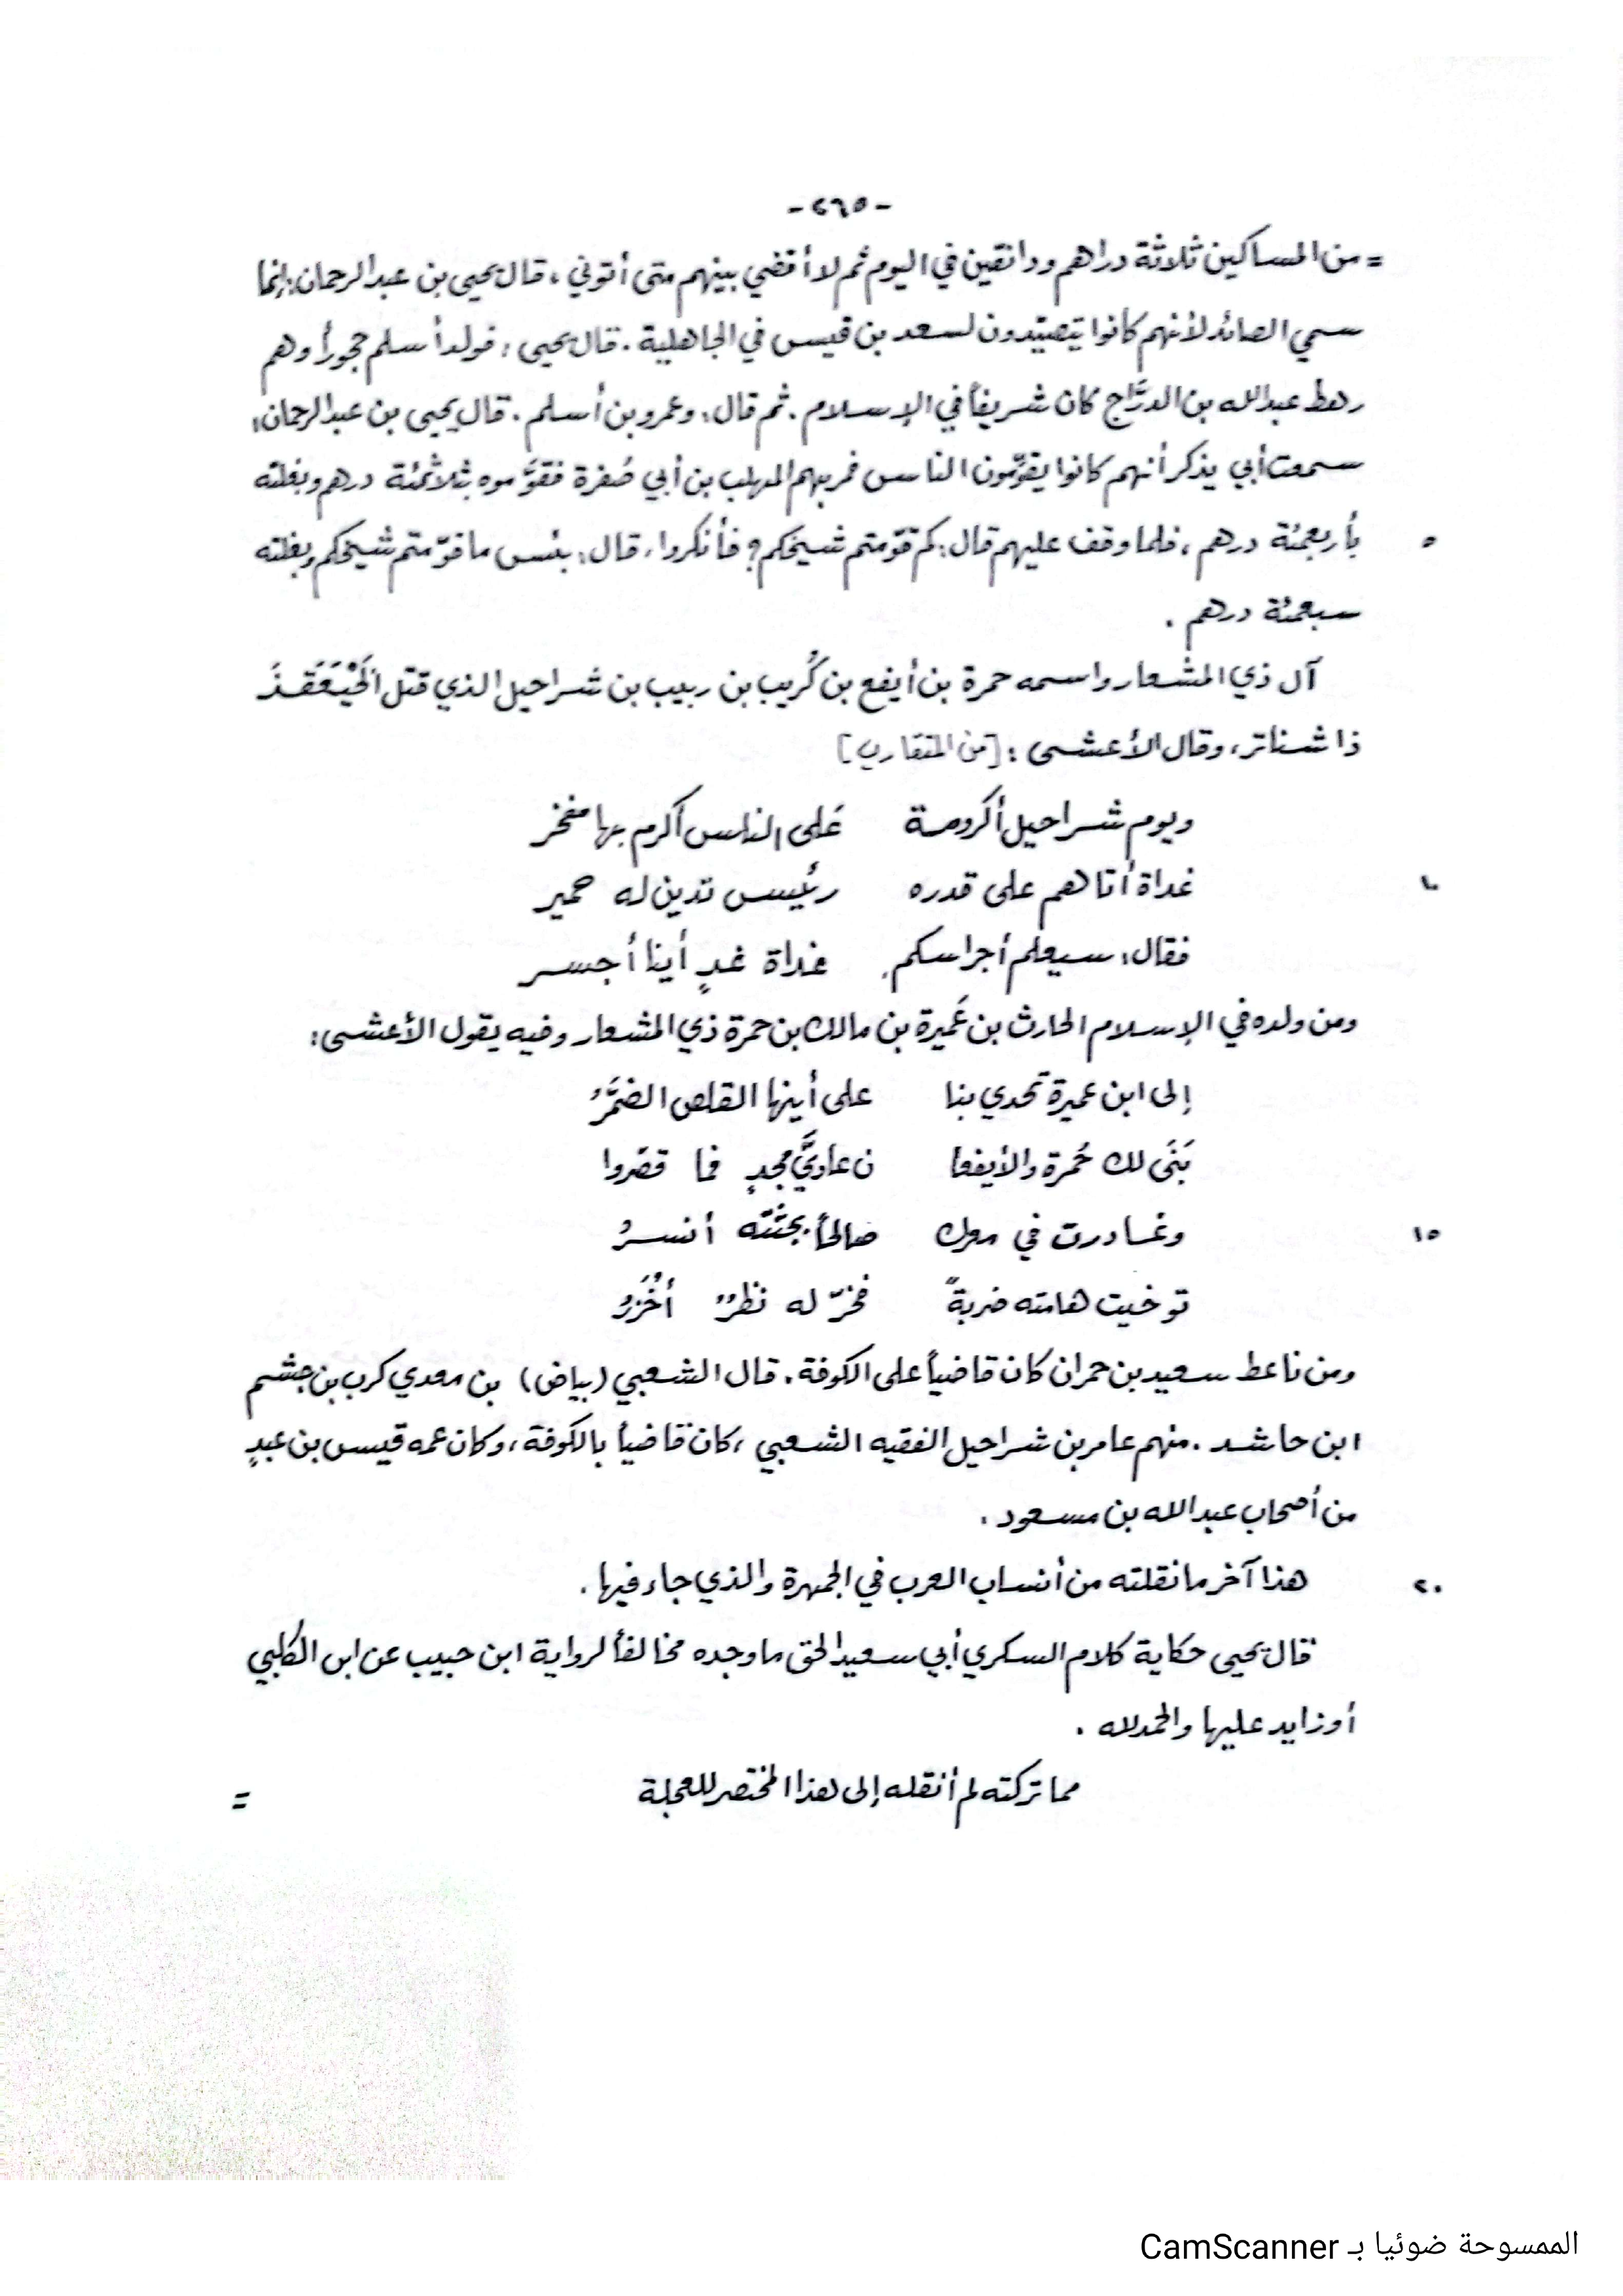 - ٢٦٥ -
= من المساكين ثلاثة دراهم ودانقين في اليوم ثم لا أقضي بينهم متى أتوني، قال يحيى بن عبد الرحمان: إنما
سمي الصائد لأنهم كانوا يتصيّدون لسعد بن قيس في الجاهلية. قال يحيى: فولد أسلم حجوراً وهم
رهط عبدالله بن الدرَّاج كان شريفاً في الإسلام. ثم قال: وعمرو بن أسلم. قال يحيى بن عبد الرحمان:
سمعت أبي يذكر أنهم كانوا يقوّمون الناس فمر بهم المهلب بن أبي صُفرة فقوَّموه بثلاثمئة درهم وبغلته
٥ بأربعمئة درهم، فلما وقف عليهم قال: كم قوّمتم شيخكم؟ فأنكروا، قال: بئس ما قوّمتم شيخكم وبغلته
سبعمئة درهم.
آل ذي المشعار واسمه حمرة بن أيفع بن كُريب بن ربيب بن شراحيل الذي قتل
ذا شناتر، وقال الأعشى: [من المتقارب]
ويوم شراحيل أكرومة عَلى الناس أكرم بها مفخر
١٠ غداة أتاهم على قدره رئيس تدين له حمير
فقال: سيعلم أجراسكم غداة غدٍ أينا أجسر
ومن ولده في الإسلام الحارث بن عَميرة بن مالك بن حمرة ذي المشعار وفيه يقول الأعشى:
إلى ابن عميرة تحدي بنا على أينها القلص الضمَّرُ
بَنَى لك حُمرة والأيفعا ن عاديَّ مجدٍ فما قصّروا
١٥ وغادرت في معرك صالحاً بجثّته أنسرُ
توخيت هامته ضربةً فخرّ له نظرٌ أخْزَرُ
ومن ناعط سعيد بن حمران كان قاضياً على الكوفة. قال الشعبي (بياض) بن معدي كرب بن جشم
ابن حاشد. منهم عامر بن شراحيل الفقيه الشعبي، كان قاضياً بالكوفة، وكان عمه قيس بن عبدٍ
من أصحاب عبد الله بن مسعود.
٢٠ هذا آخر ما نقلته من أنساب العرب في الجمهرة والذي جاء فيها.
قال يحيى حكاية كلام السكري أبي سعيد الحق ما وجده مخالفاً لرواية ابن حبيب عن ابن الكلبي
أو زايد عليها والحمد لله.
مما تركته لم أنقله إلى هذا المختصر للعجلة =
الممسوحة ضوئيا بـ CamScanner